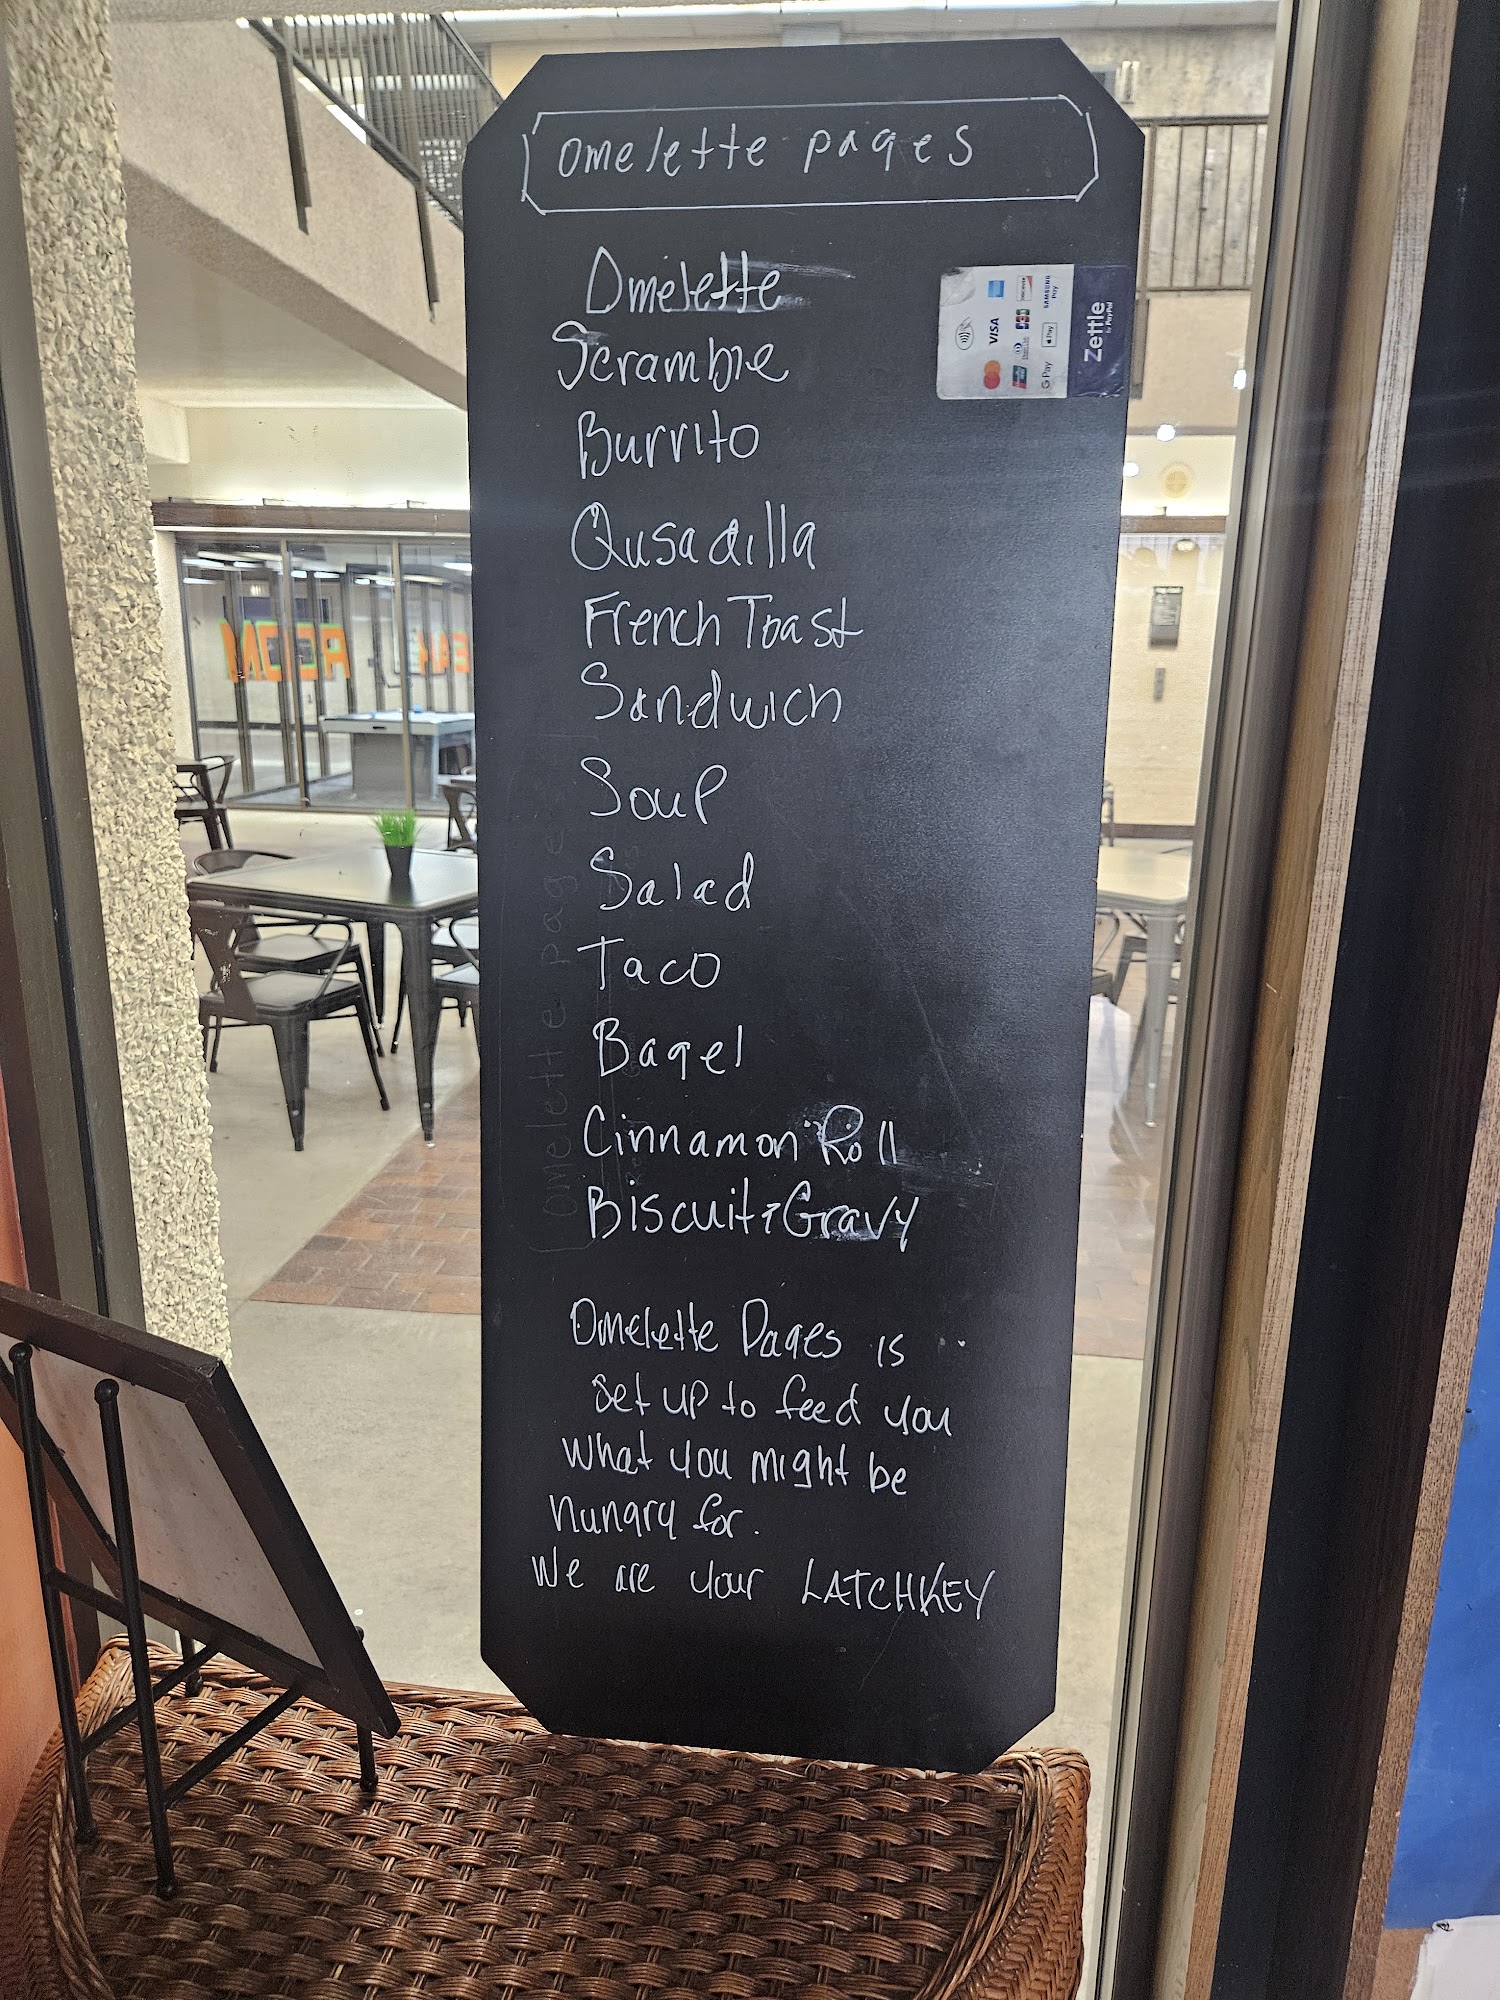 omelette pages
Omelette
Scramble
Burrito
Qusadilla
French Toast
Sandwich
Soup
Salad
Taco
Bagel
Cinnamon Roll
Biscuit & Gravy
Omelette Pages is
set up to feed you
what you might be
hungry for.
We are your LATCHKEY
VISA
DISCOVER
SAMSUNG Pay
Pay
G Pay
Zettle
by PayPal
omelette pages
ROOM